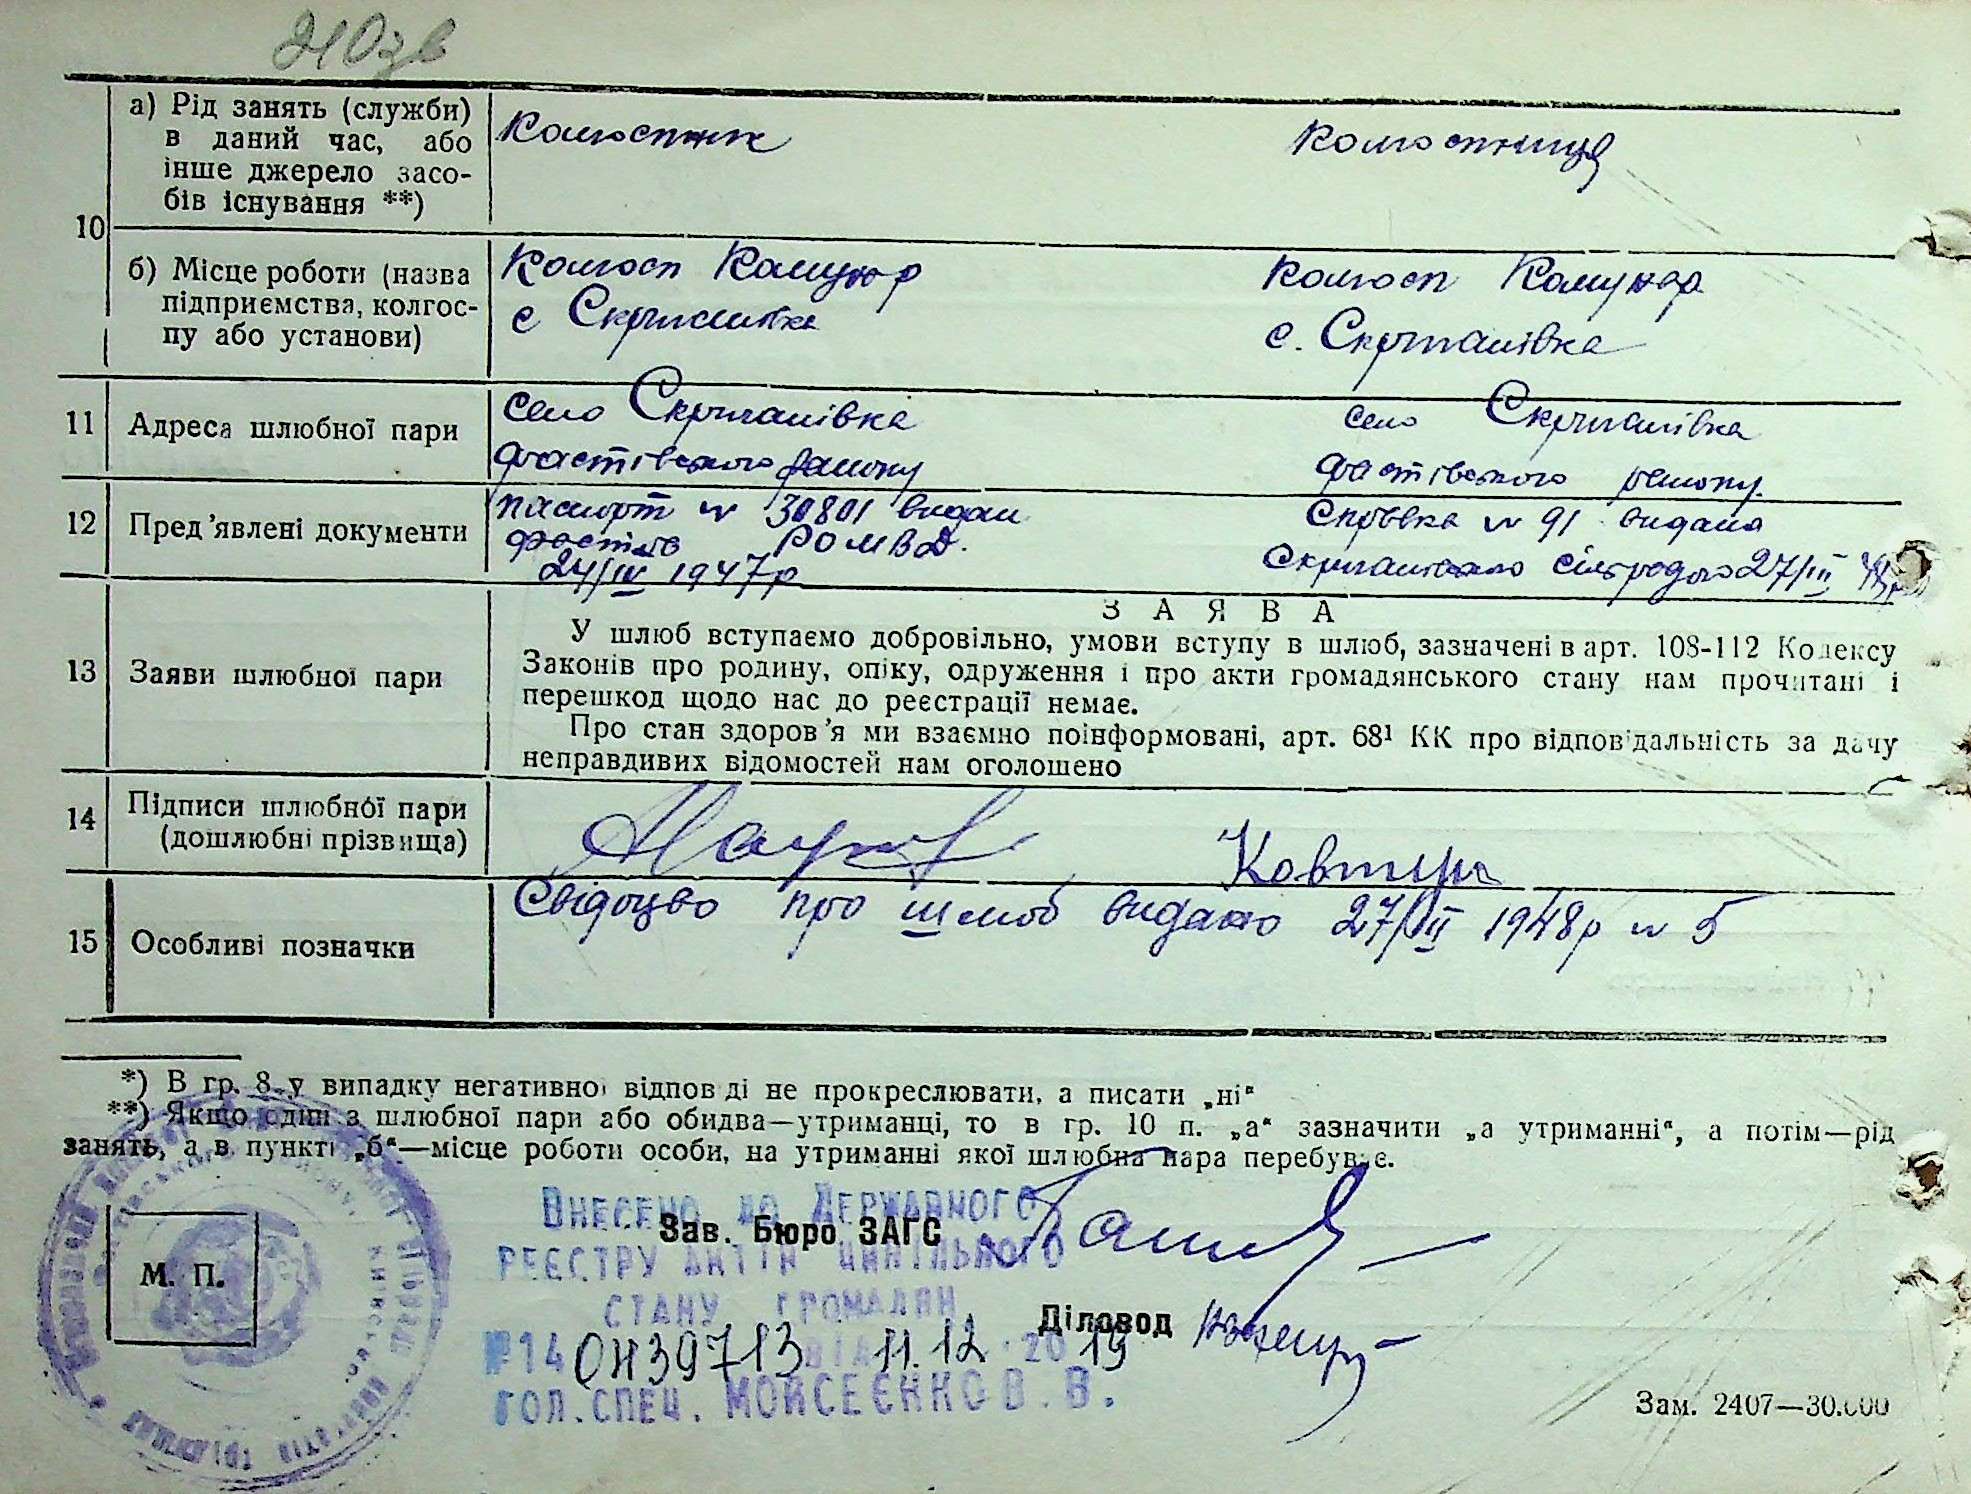 210зв
10
а) Рід занять (служби) в даний час, або інше джерело засобів існування **)
колгоспник
колгоспниця
б) Місце роботи (назва підприємства, колгоспу або установи)
колгосп Комунар
с Скригалівка
колгосп Комунар
с. Скригалівка
11 Адреса шлюбної пари
село Скригалівка
фастівського району
село Скригалівка
фастівського району.
12 Пред'явлені документи
паспорт № 30801 видан
РОМВД.
24/IV 1947р
Справка № 91 видана
сільрадою 27/III 48р
13 Заяви шлюбної пари
ЗАЯВА
У шлюб вступаємо добровільно, умови вступу в шлюб, зазначені в арт. 108-112 Кодексу
Законів про родину, опіку, одруження і про акти громадянського стану нам прочитані і
перешкод щодо нас до реєстрації немає.
Про стан здоров'я ми взаємно поінформовані, арт. 68¹ КК про відповідальність за дачу
неправдивих відомостей нам оголошено
14 Підписи шлюбної пари
(дошлюбні прізвища)
Ковтун
15 Особливі позначки
Свідоцво про шлюб видано 27/III 1948р № 5
*) В гр. 8 у випадку негативної відповіді не прокреслювати, а писати „ні“
**) Якщо один з шлюбної пари або обидва—утриманці, то в гр. 10 п. „а“ зазначити „а утриманні“, а потім—рід
занять, а в пункті „б“—місце роботи особи, на утриманні якої шлюбна пара перебуває.
М. П.
Зав. Бюро ЗАГС
Діловод
Внесено до Державного
реєстру актів цивільного
стану громадян
№14 0439713 від 11.12.2019
гол. спец. Мойсеєнко В. В.
Зам. 2407—30.000